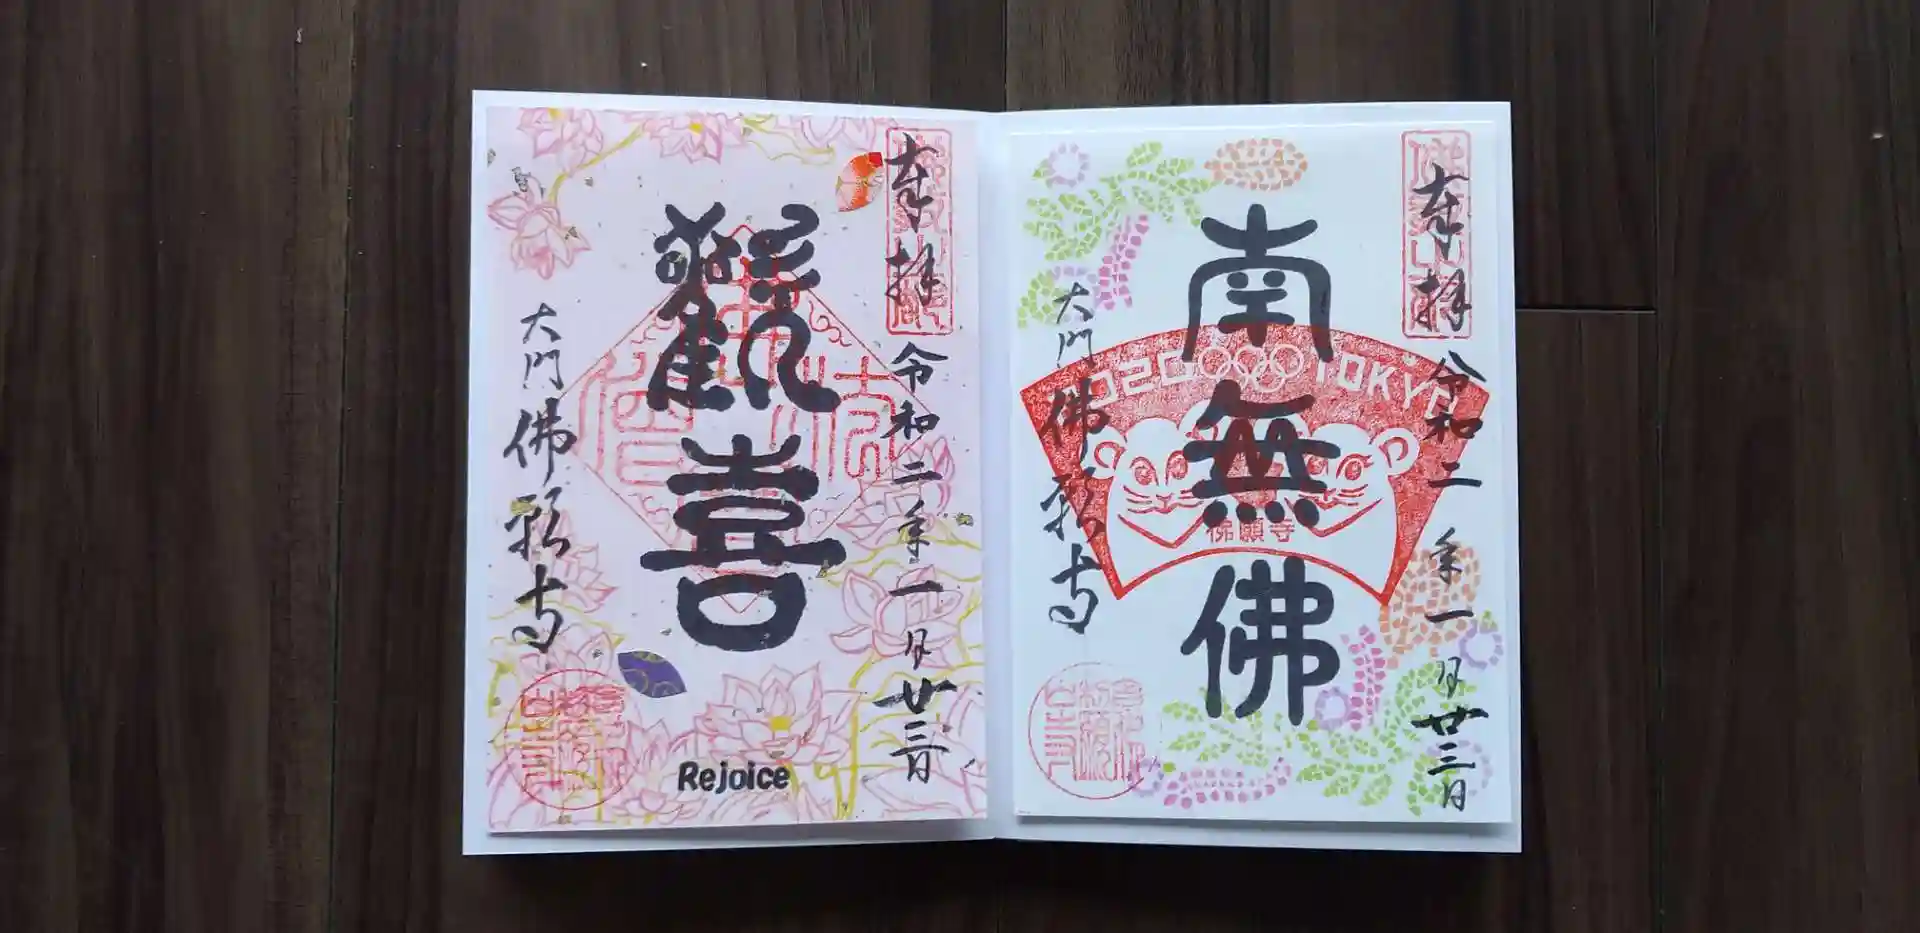 奉拝
令和二年一月廿三日
南無佛
2020 TOKYO
佛願寺
大門 佛願寺
奉拝
令和二年一月廿三日
歡喜
Rejoice
大門 佛願寺